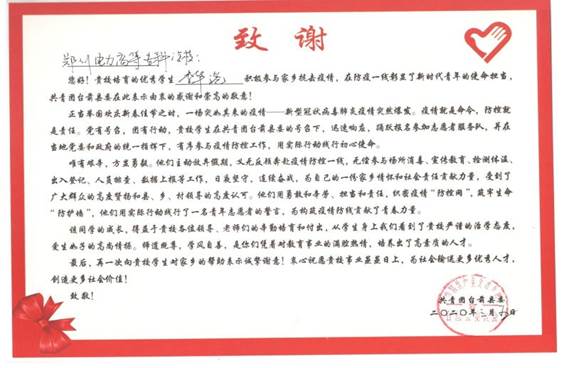 致谢
郑州电力高等专科学校：
您好！贵校培育的优秀学生 积极参与家乡抗击疫情，在防疫一线彰显了新时代青年的使命担当，
共青团台前县委在此表示由衷的感谢和崇高的敬意！
正当举国欢庆新春佳节之时，一场突如其来的疫情——新型冠状病毒肺炎疫情突然爆发。疫情就是命令，防控就
是责任。党有号召，团有行动，贵校学生在共青团台前县委的号召下，迅速响应，踊跃报名参加志愿者服务队，并在
当地党委和政府的统一指挥下，有序参与疫情防控工作，用实际行动践行初心使命。
唯有艰辛，方显勇毅。他们主动放弃假期，义无反顾奔赴疫情防控一线，无偿参与场所消毒、宣传教育、检测体温、
出入登记、人员排查、数据上报等工作，日夜坚守，连续奋战，为自己的一传家乡情怀和社会责任贡献力量，受到了
广大群众的高度赞扬和县、乡、村领导的高度认可。他们用勇敢和辛劳、担当和责任，织密疫情“防控网”，筑牢生命
“防护墙”，他们用实际行动践行了一名青年志愿者的誓言，为构筑疫情防线贡献了青春力量。
该同学的成长，得益于贵校各位领导、老师们的辛勤培育和付出，从学生身上我们看到了贵校严谨的治学态度，
爱生如子的高尚情操。师道既尊，学风自善，是你们凭着对教育事业的满腔热情，培养出了高素质的人才。
最后，再一次向贵校学生对家乡的帮助表示诚挚谢意！衷心祝愿贵校事业蒸蒸日上，为社会输送更多优秀人才，
创造更多社会价值！
致敬！
共青团台前县委
二〇二〇年三月 日